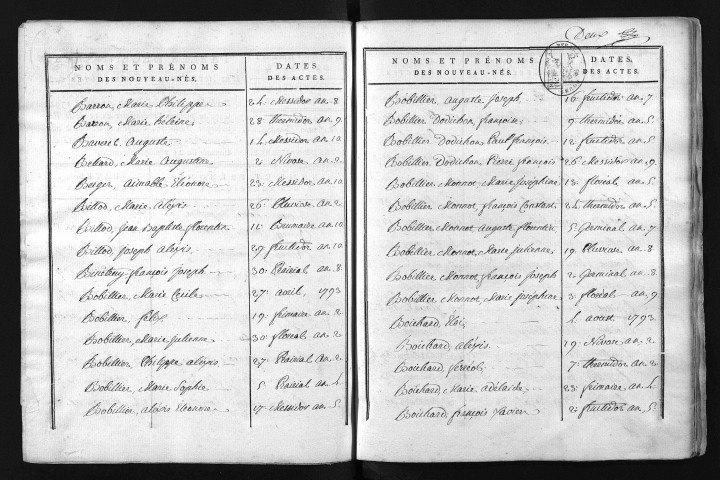 NOMS ET PRÉNOMS DES NOUVEAU-NÉS. DATES DES ACTES.
Barron, Marie Philippe 24 Messidor an 8
Barron, Marie heleine 28 thermidor an 9
Baverel, Auguste 14 Messidor an 10
Bettard, Marie Augustine 2 Nivose an 2
Berger, aimable Eléonore 23 Messidor an 10
Billod, Marie alexis 26 Pluviose an 2
Billod, Jean Baptiste florentin 16 Brumaire an 10
Billod, Joseph alexis 29 fructidor an 10
françois Joseph 30 Prairial an 8
Bobillier, Marie Cecile 27 avril 1793
Bobillier, felix 19 frimaire an 2
Bobillier, Marie Julienne 30 floreal an 2
Bobillier, Philippe alexis 27 Prairial an 2
Bobillier, Marie Sophie 5 Prairial an 4
Bobillier, alexis Eleonore 17 Messidor an 5
Deux
NOMS ET PRÉNOMS DES NOUVEAU-NÉS. DATES DES ACTES.
Bobillier, Auguste Joseph 16 fructidor an 7
Bobillier Dodichon, françoise 9 thermidor an 5
Bobillier Dodichon Paul françois 12 fructidor an 5
Bobillier Dodichon Pierre françois 26 Messidor an 9
Bobillier Monnot, Marie Joséphine 13 floréal an 5
Bobillier Monnot, françois Constant 24 thermidor an 5
Bobillier Monnot, Auguste florentin 5 Germinal an 7
Bobillier Monnot, Marie Julienne 19 Pluviose an 8
Bobillier Monnot françois Joseph 2 Germinal an 8
Bobillier Monnot, Marie Joséphine 3 floréal an 9
Boichard, Eloi 4 aoust 1793
Boichard, alexis 19 Nivose an 2
Boichard, féréol 7 thermidor an 2
Boichard, Marie adelaide 23 frimaire an 4
Boichard, françois Xavier 2 fructidor an 5